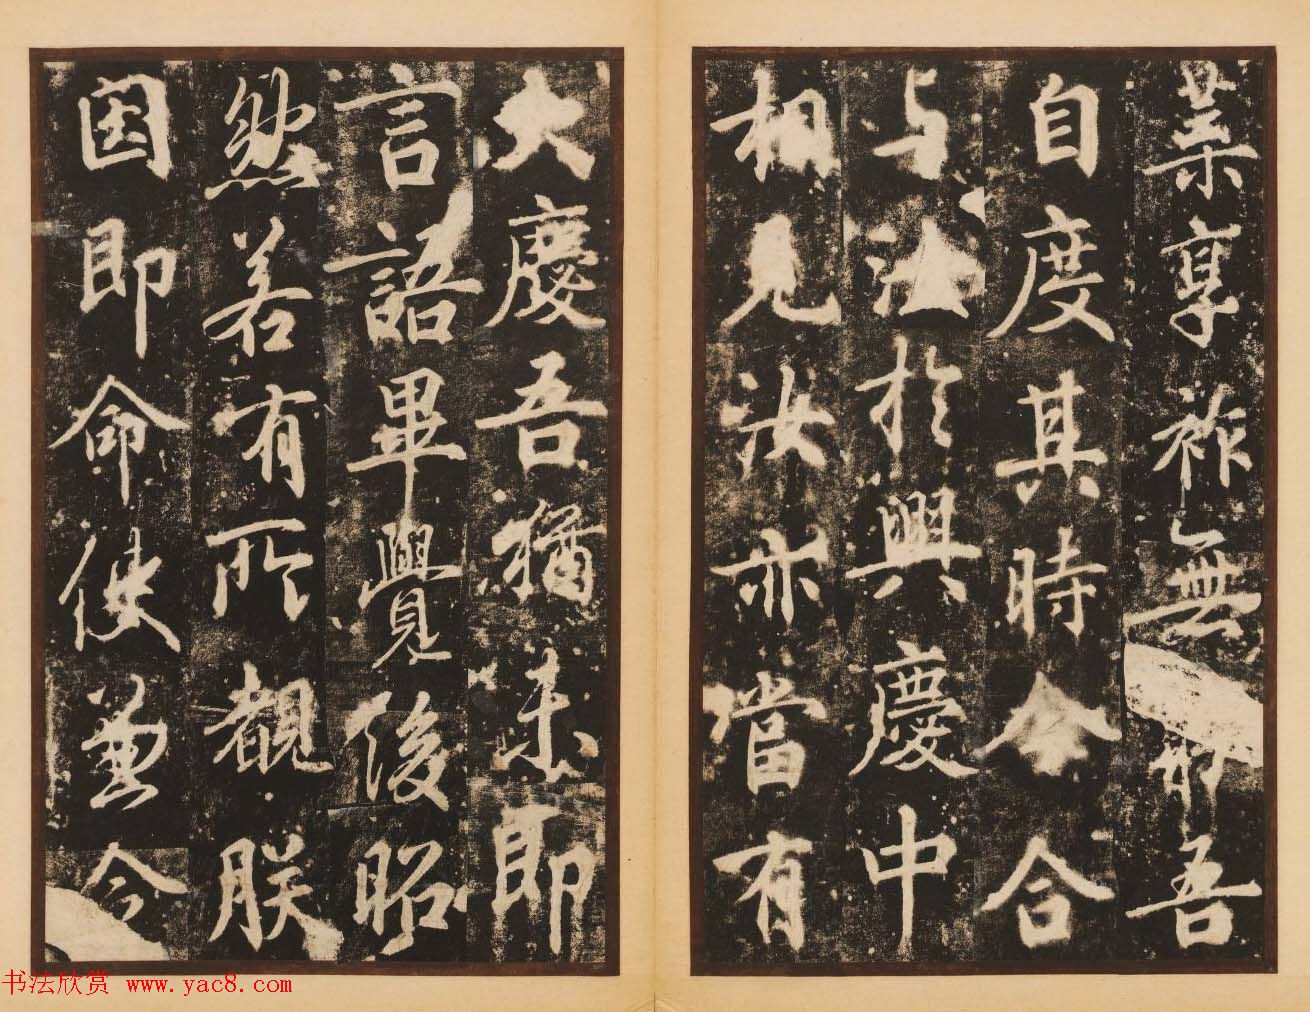 葉享祚無吾
自度其時今合
与汝於興慶中
相見汝亦當有
大慶吾猶未即
言語畢覺後昭
然若有所覩朕
因即命使兼令
书法欣赏 www.yac8.com